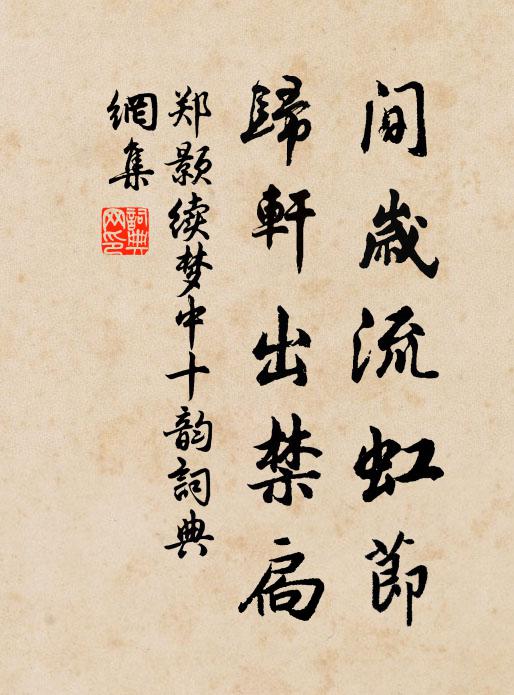 間歲流虹節
歸軒出禁扃
郑颢续梦中十韵詞典
網集
詞典
网印